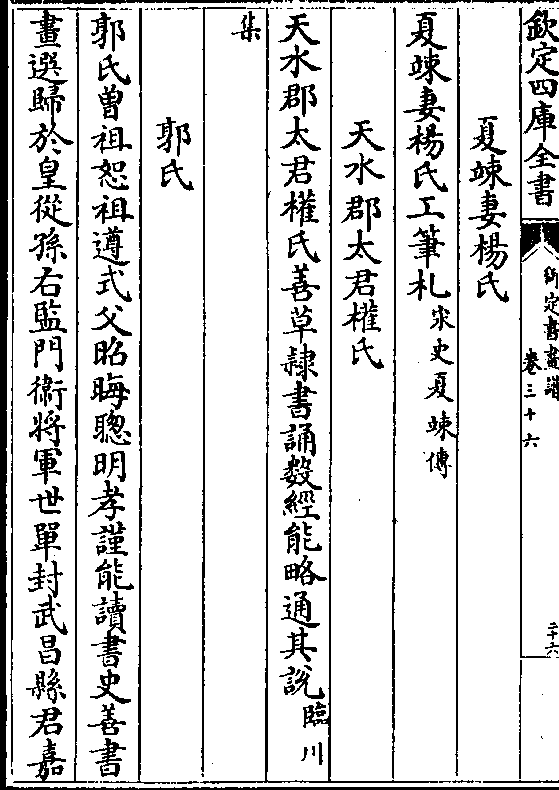 欽定四庫全書
御定書畫譜
卷三十六
二十六
夏竦妻楊氏
夏竦妻楊氏工筆札宋史夏竦傳
天水郡太君權氏
天水郡太君權氏善草隸書誦數經能略通其說臨川
集
郭氏
郭氏曾祖恕祖遵式父昭晦聰明孝謹能讀書史善書
畫選歸於皇從孫右監門衛將軍世單封武昌縣君嘉